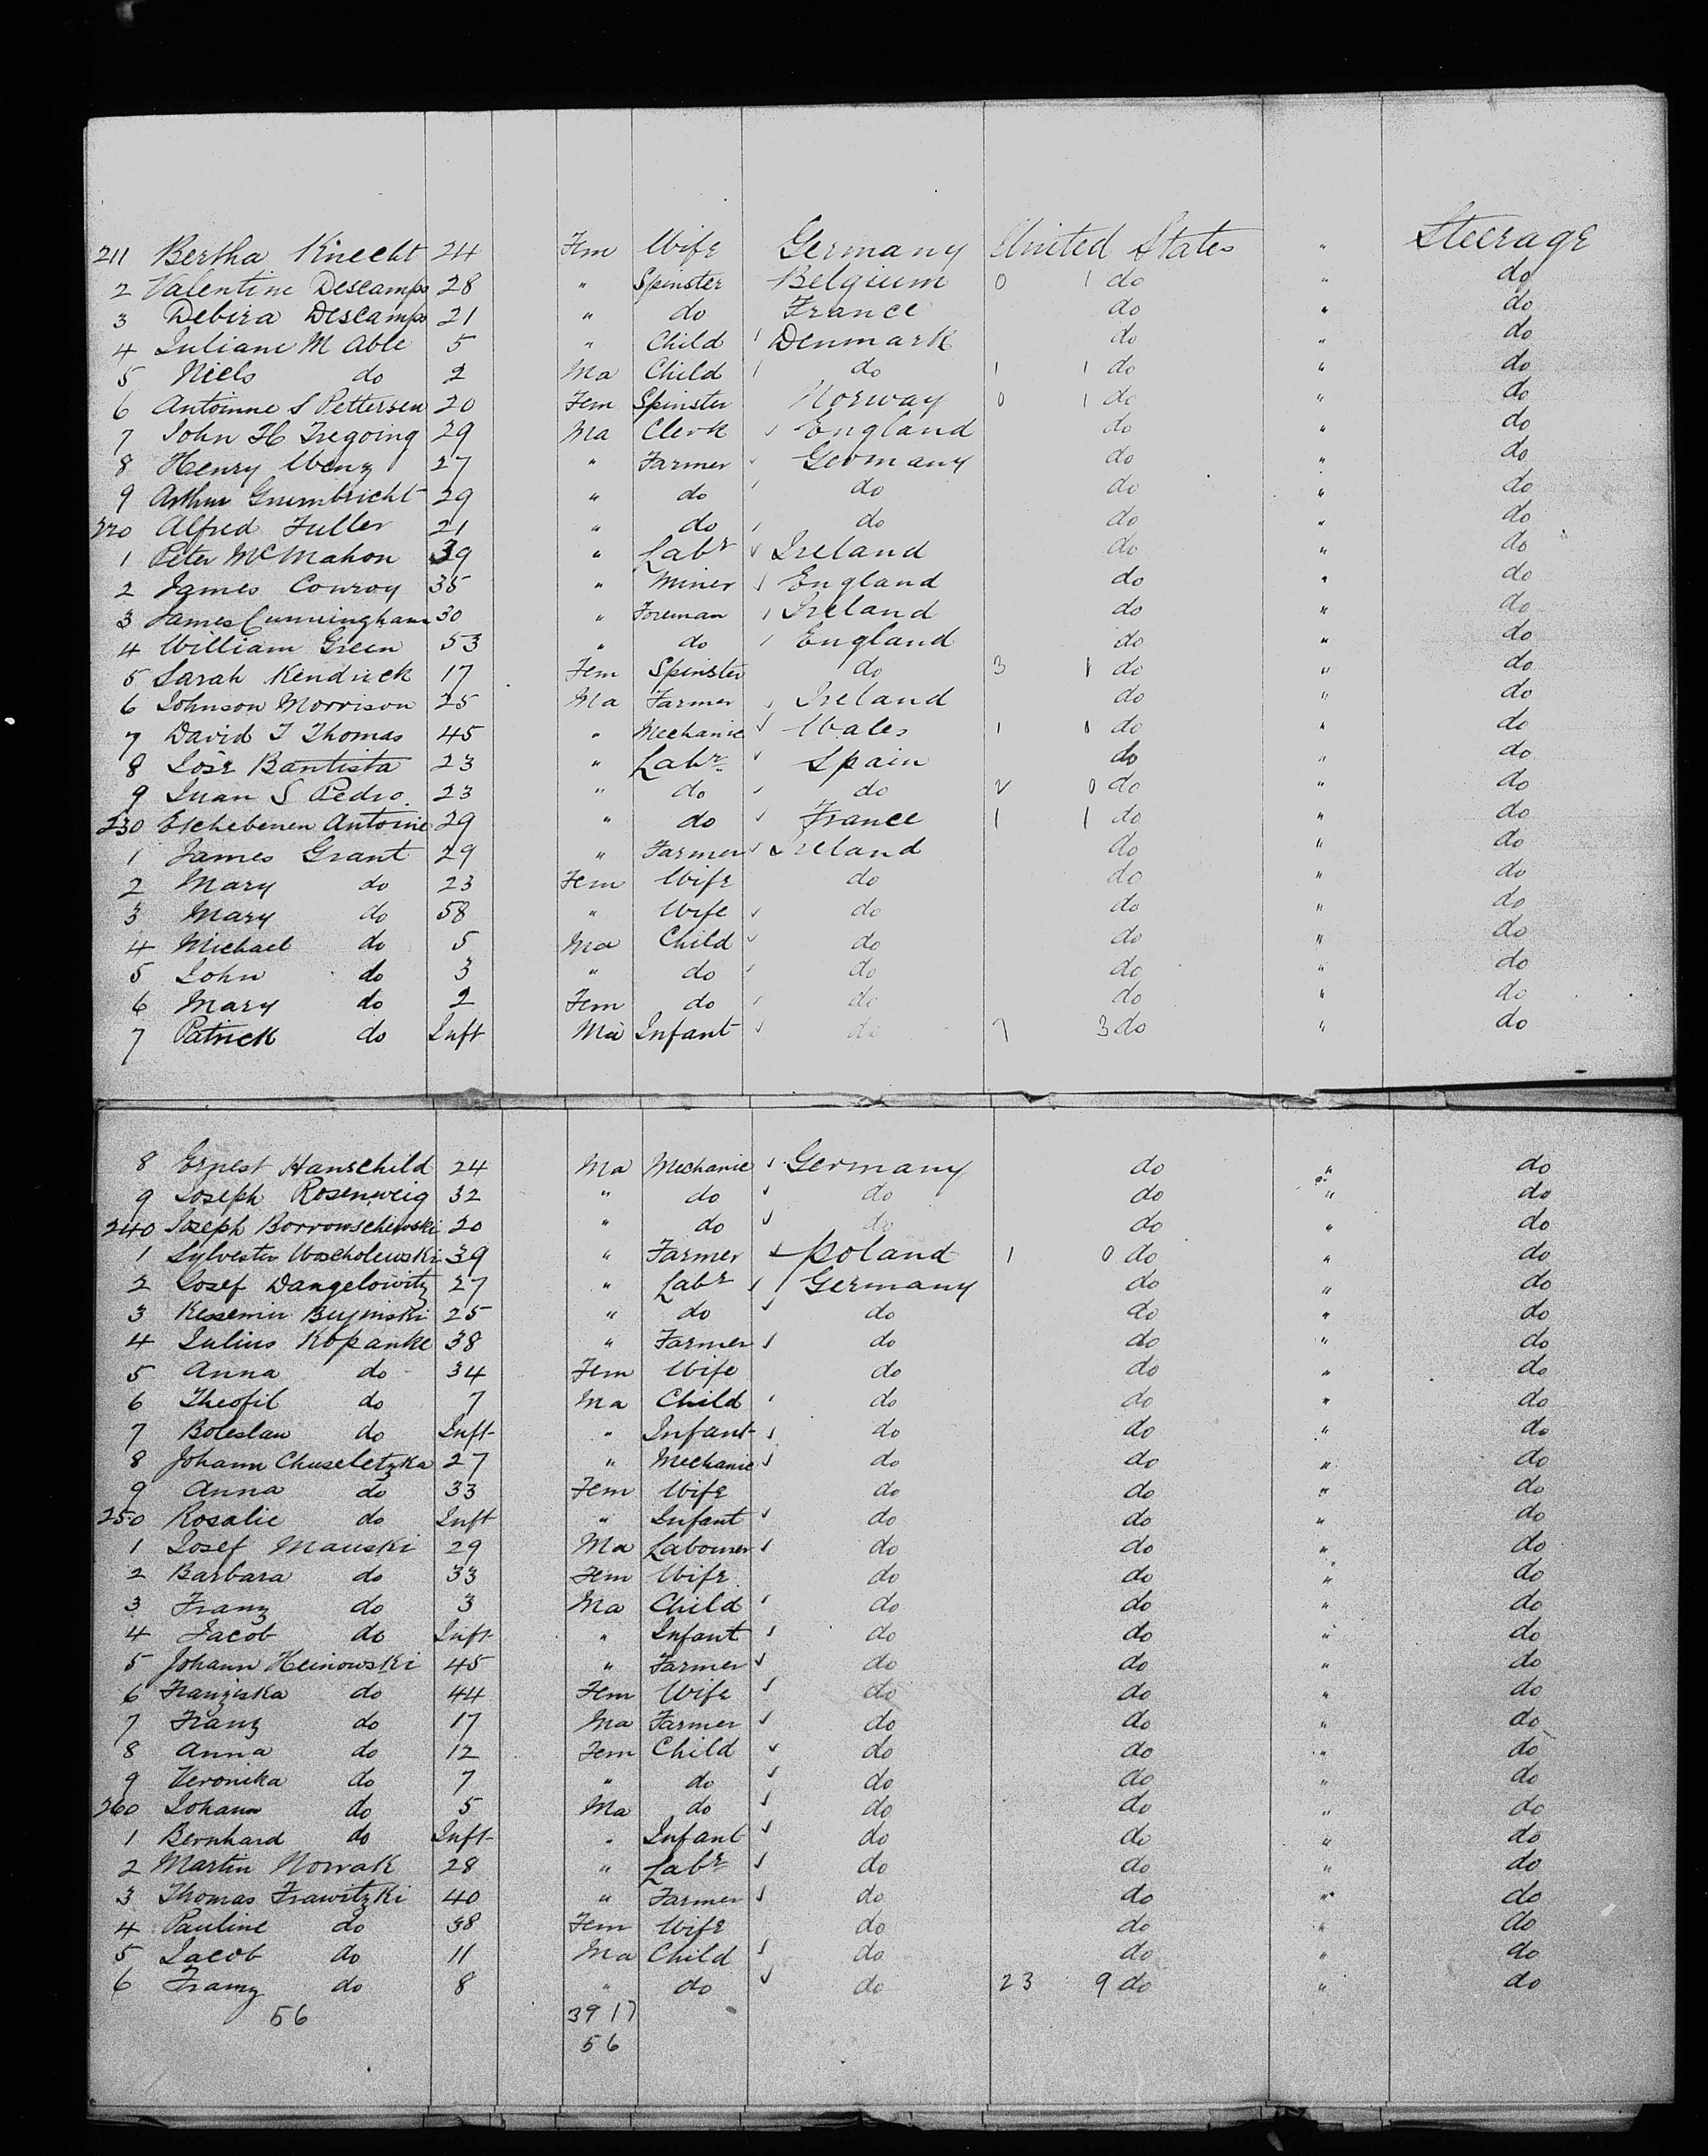 211 Bertha Knecht 24 Fem Wife Germany United States " Steerage
2 Valentine Descamps 28 " Spinster Belgium 0 1 do " do
3 Debira Descamps 21 " do France do " do
4 Juliane M Able 5 " Child Denmark do " do
5 Niels do 2 Ma Child do 1 1 do " do
6 Antoinne S Pettersen 20 Fem Spinster Norway 0 1 do " do
7 John H Tregoing 29 Ma Clerk England do " do
8 Henry Wenz 27 " Farmer Germany do " do
9 Arthur Grumbricht 29 " do do do " do
220 Alfred Fuller 21 " do do do " do
1 Peter McMahon 39 " Labr Ireland do " do
2 James Conroy 35 " Miner England do " do
3 James Cunningham 30 " Foreman Ireland do " do
4 William Green 53 " do England do " do
5 Sarah Kendrick 17 Fem Spinster do 3 1 do " do
6 Johnson Morrison 25 Ma Farmer Ireland do " do
7 David T Thomas 45 " Mechanic Wales 1 0 do " do
8 José Bautista 23 " Labr Spain do " do
9 Juan S Pedro 23 " do do 2 0 do " do
230 Etchebenen Antoine 29 " do France 1 1 do " do
1 James Grant 29 " Farmer Ireland do " do
2 Mary do 23 Fem Wife do do " do
3 Mary do 58 " Wife do do " do
4 Michael do 5 Ma Child do do " do
5 John do 3 " do do do " do
6 Mary do 2 Fem do do do " do
7 Patrick do Inft Ma Infant do 7 3 do " do
8 Ernest Hanschild 24 Ma Mechanic Germany do " do
9 Joseph Rosenweig 32 " do do do " do
240 Joseph Borrowschewski 20 " do do do " do
1 Sylvester Woscholewski 39 " Farmer Poland 1 0 do " do
2 Josef Dangelowitz 27 " Labr Germany do " do
3 Kessemir Bujinski 25 " do do do " do
4 Julius Kopanke 38 " Farmer do do " do
5 Anna do 34 Fem Wife do do " do
6 Theofil do 7 Ma Child do do " do
7 Boleslaw do Inft " Infant do do " do
8 Johann Chuseletzka 27 " Mechanic do do " do
9 Anna do 33 Fem Wife do do " do
250 Rosalie do Inft " Infant do do " do
1 Josef Mauski 29 Ma Labourer do do " do
2 Barbara do 33 Fem Wife do do " do
3 Franz do 3 Ma Child do do " do
4 Jacob do Inft " Infant do do " do
5 Johann Heinowski 45 " Farmer do do " do
6 Franziska do 44 Fem Wife do do " do
7 Franz do 17 Ma Farmer do do " do
8 Anna do 12 Fem Child do do " do
9 Veronika do 7 " do do do " do
260 Johann do 5 Ma do do do " do
1 Bernhard do Inft " Infant do do " do
2 Martin Nowak 28 " Labr do do " do
3 Thomas Frawitzki 40 " Farmer do do " do
4 Pauline do 38 Fem Wife do do " do
5 Jacob do 11 Ma Child do do " do
6 Franz do 8 " do do 23 9 do " do
56 39 17
56